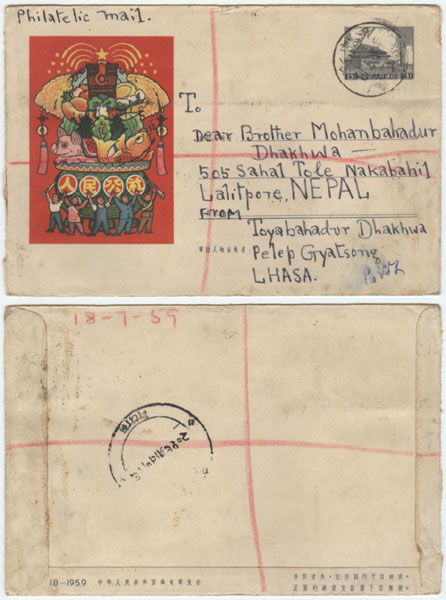 Philatelic mail.
人民公社
To
Dear Brother Mohanbahadur
Dhakhwa
505 Sahal Tole Nakabahil
Lalitpore, NEPAL
From
Toyabahadur Dhakhwa
Pelep Gyatsong
LHASA.
18-7-59
18-1959 中华人民共和国邮电部发行